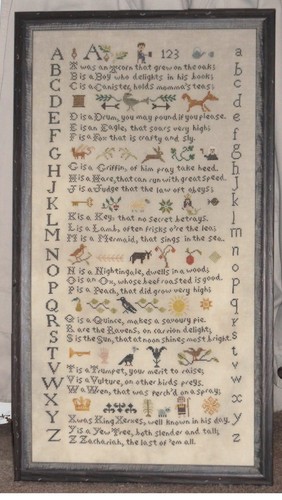 A
B
C
D
E
F
G
H
J
K
L
M
N
O
P
Q
R
S
T
V
W
X
Y
Z
A 123
A was an acorn that grew on the oak;
B is a Boy who delights in his book;
C is a Canister, holds momma's teas;
D is a Drum, you may pound if you please.
E is an Eagle, that soars very high;
F is a Fox that is crafty and sly.
G is a Griffin, of him pray take heed.
H is a Hare, that can run with great speed.
J is a Judge that the law oft obeys;
K is a Key, that no secret betrays.
L is a Lamb, often frisks o're the lea;
M is a Mermaid, that sings in the sea.
N is a Nightingale, dwells in a wood;
O is an Ox, whose beef roasted is good.
P is a Peach, that did grow very high;
Q is a Quince, makes a savoury pie.
R are the Ravens, on carrion delight;
S is the Sun, that at noon shines most bright.
T is a Trumpet, your merit to raise;
V is a Vulture, on other birds preys.
W a Wren, that was perch'd on a spray;
X was King Xerxes, well known in his day.
Y is a Yew Tree, both slender and tall;
Z Zachariah, the last of 'em all.
a
b
c
d
e
f
g
h
j
k
l
m
n
o
p
q
r
s
t
v
w
x
y
z